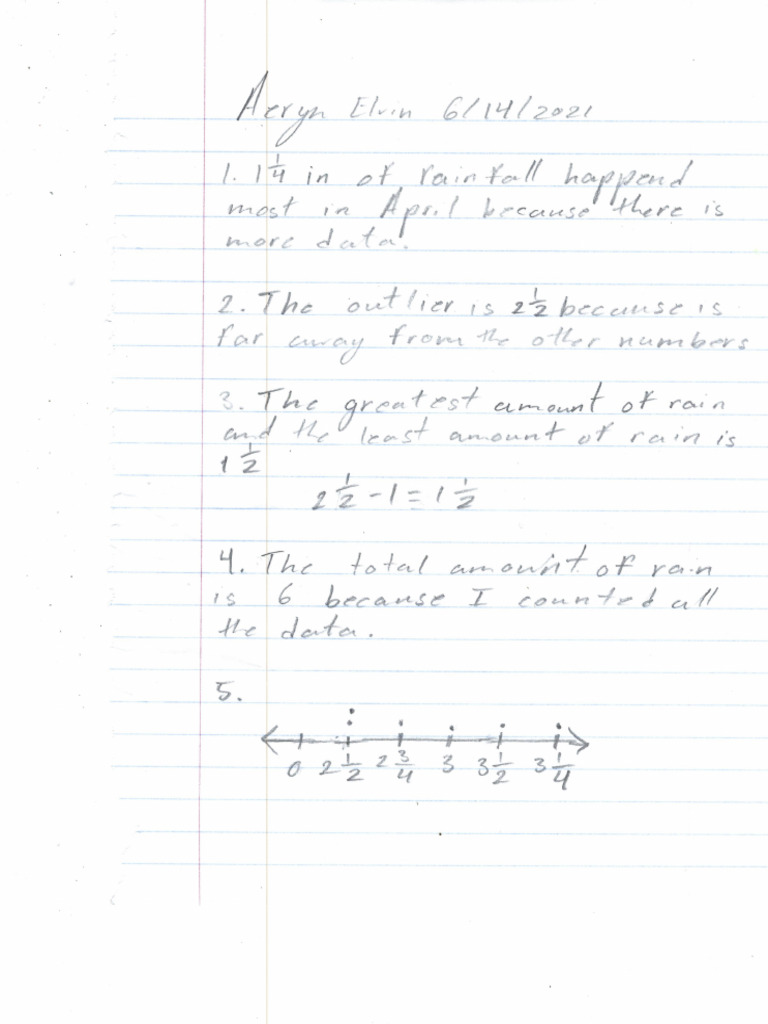 Aeryn Elvin 6/14/2021
1. 1 1/4 in of rainfall happend
most in April because there is
more data.
2. The outlier is 2 1/2 because is
far away from the other numbers
3. The greatest amount of rain
and the least amount of rain is
1 1/2
2 1/2 - 1 = 1 1/2
4. The total amount of rain
is 6 because I counted all
the data.
5.
0 2 1/2 2 3/4 3 3 1/2 3 1/4